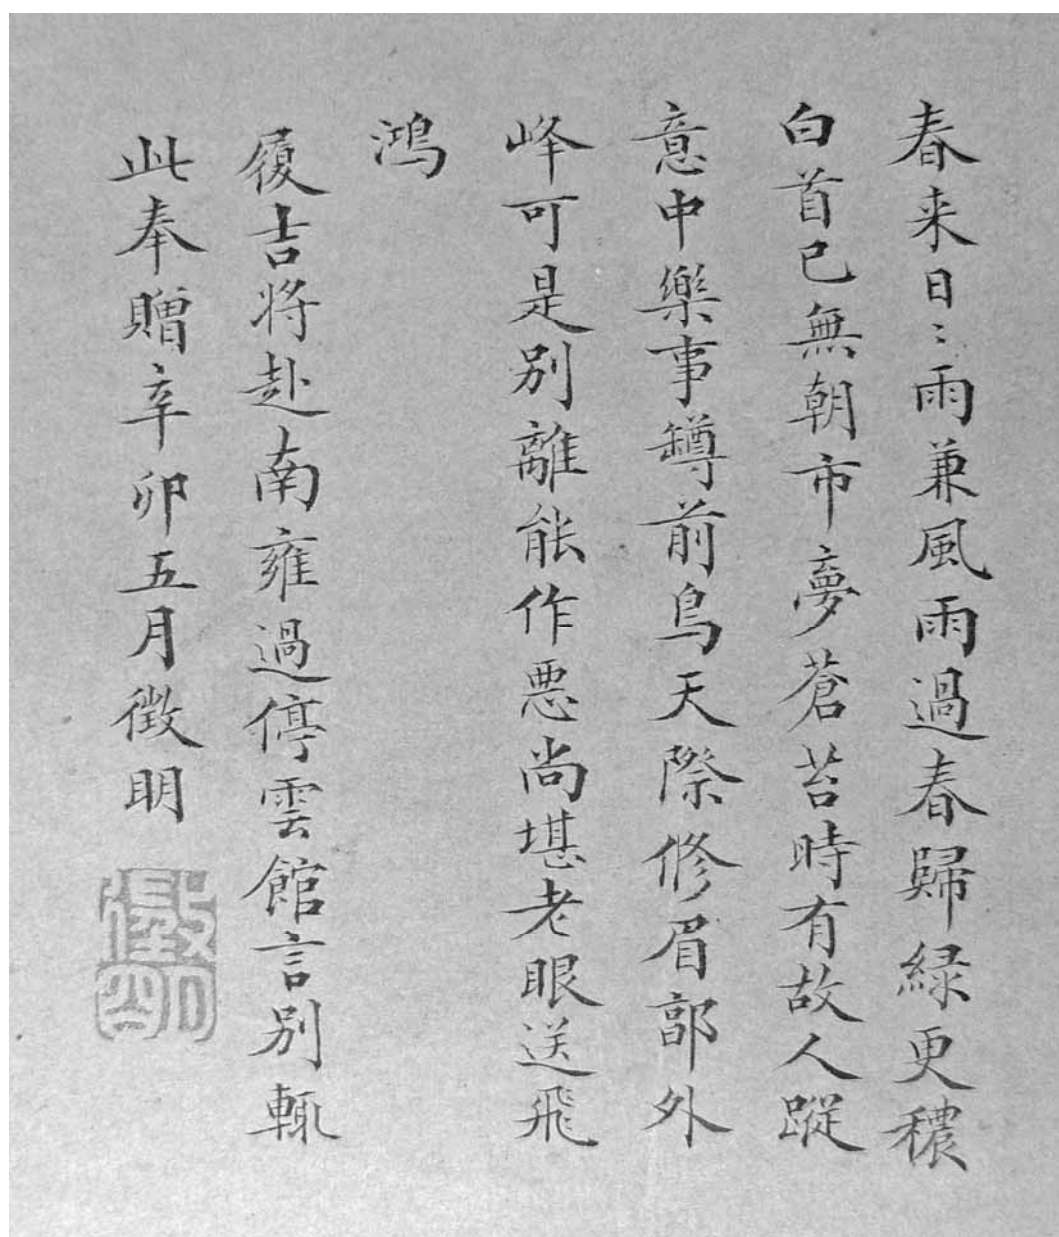 春来日〻雨兼風雨過春歸緑更穠
白首已無朝市夢蒼苔時有故人蹤
意中樂事罇前鳥天際修眉郭外
峰可是別離能作悪尚堪老眼送飛
鴻
履吉将赴南雍過停雲館言別輒
此奉贈辛卯五月徴明
徴明